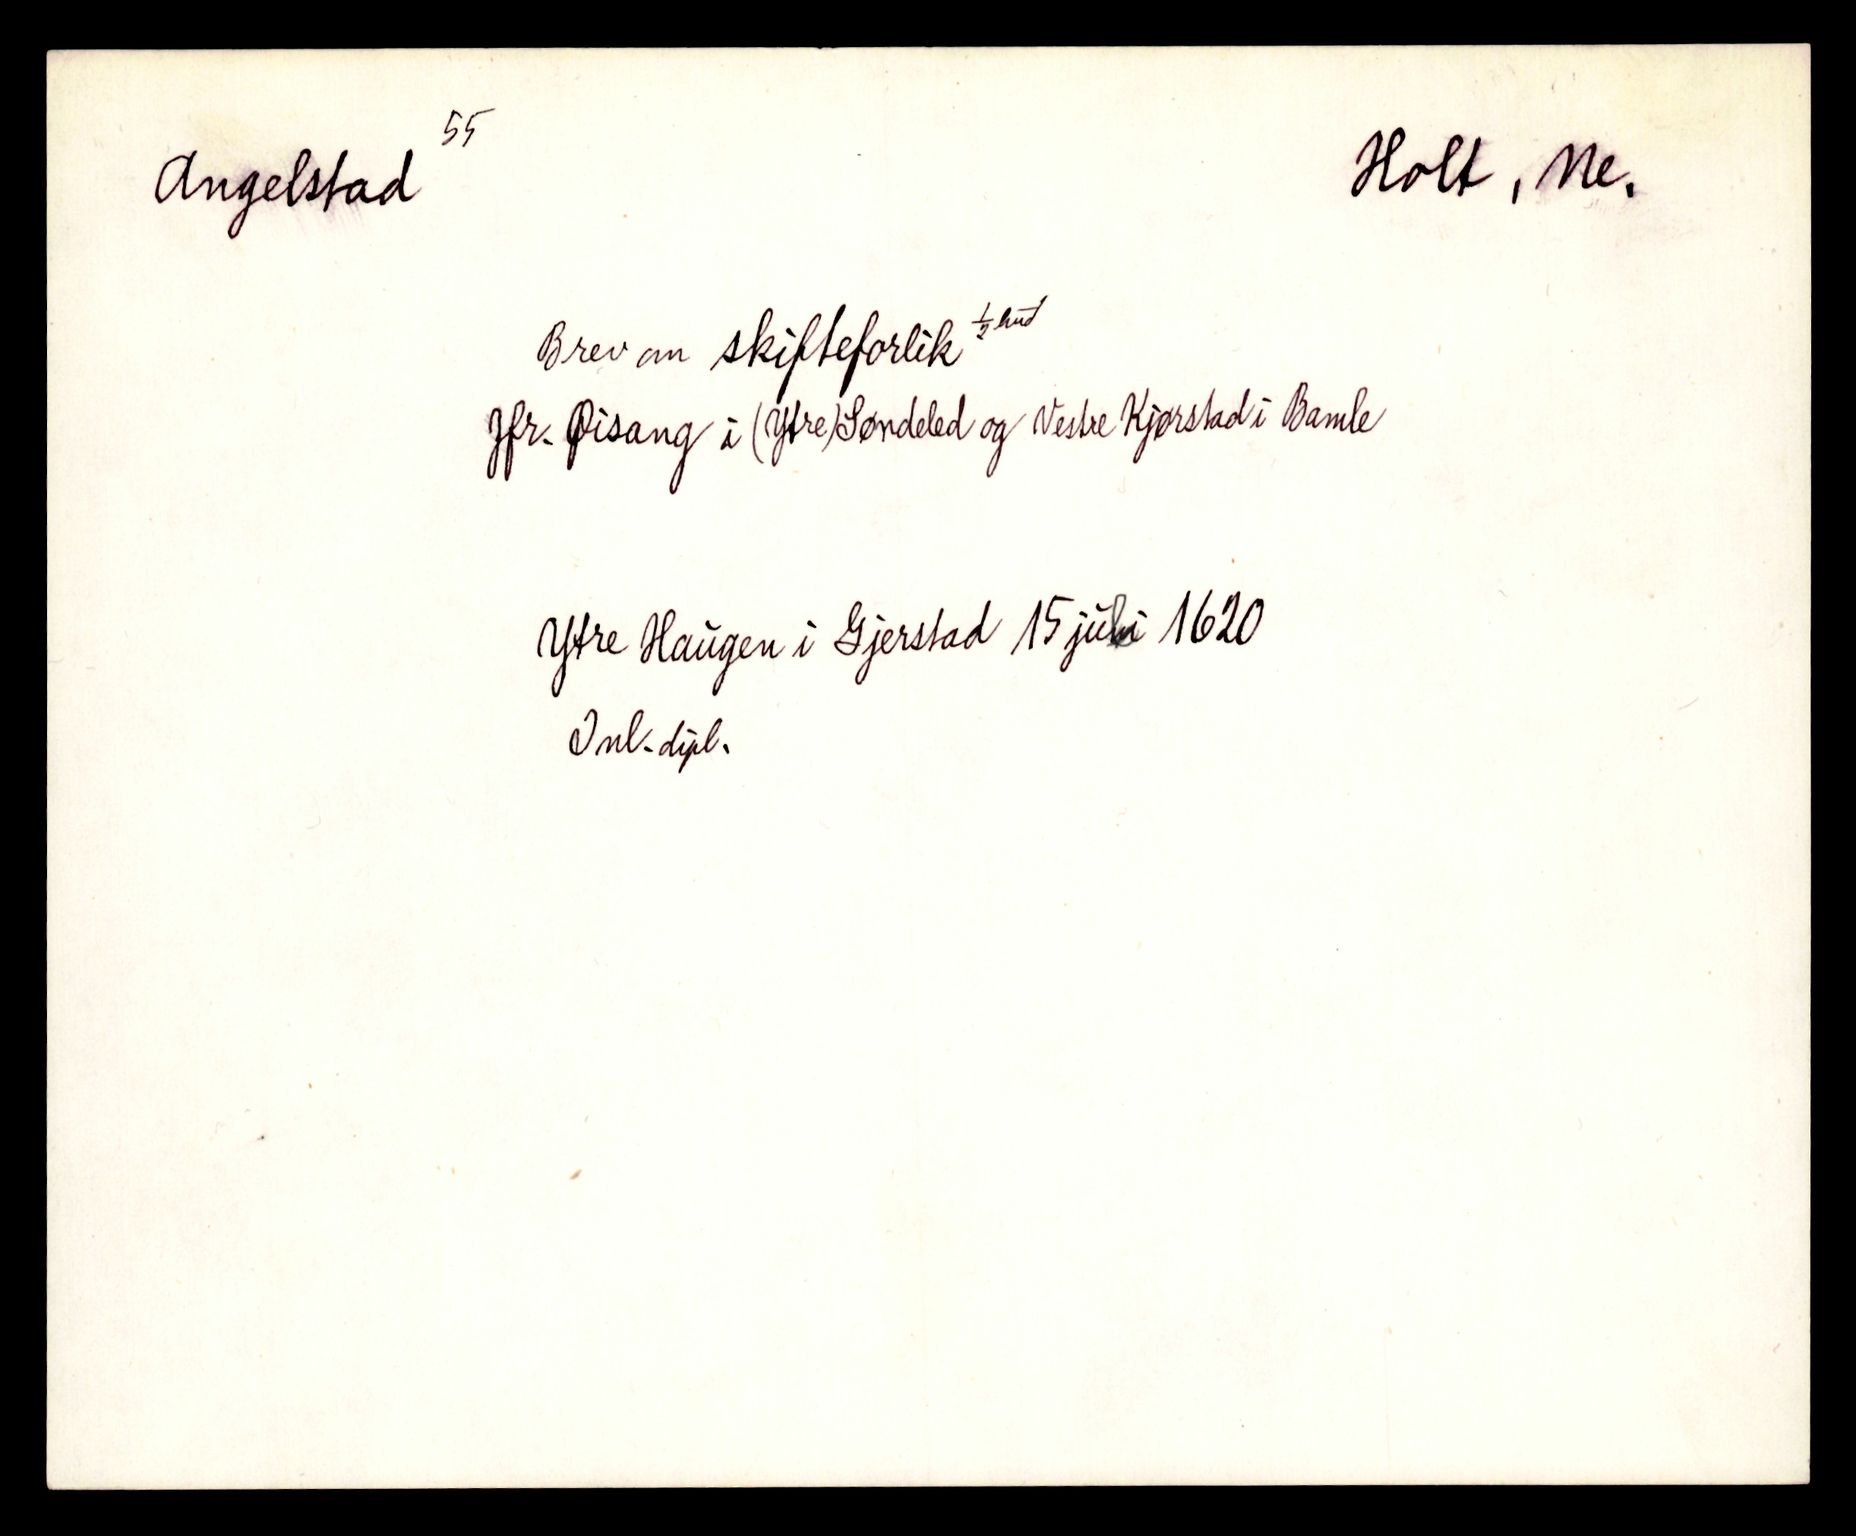 Angelstad 55
Holt, Ne.
Brev om skifteforlik ½ hud
Jfr. Øisang i (Ytre) Søndeled og Vestre Kjørstad i Bamle
Ytre Haugen i Gjerstad 15 juli 1620
Inl. dipl.